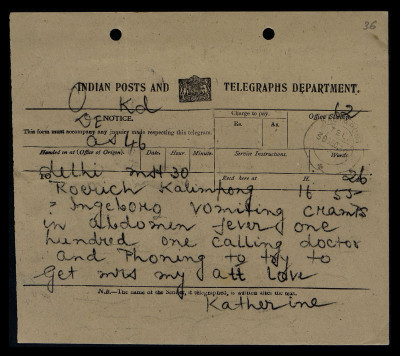 36
INDIAN POSTS AND TELEGRAPHS DEPARTMENT.
Kd
NOTICE.
This form must accompany any inquiry made respecting this telegram.
Charge to pay.
Rs. As.
Office Stamp.
62
DE
OS46
Handed in at (Office of Origin). Date. Hour. Minute. Service Instructions. Words.
Delhi 30 26
Recd here at H.
Roerich Kalimpong 16 55
= Ingeborg vomiting cramps
in abdomen fever one
hundred one calling doctor
and Phoning to try to
Get mrs my all love
Katherine
N.B.—The name of the Sender, if telegraphed, is written after the text.